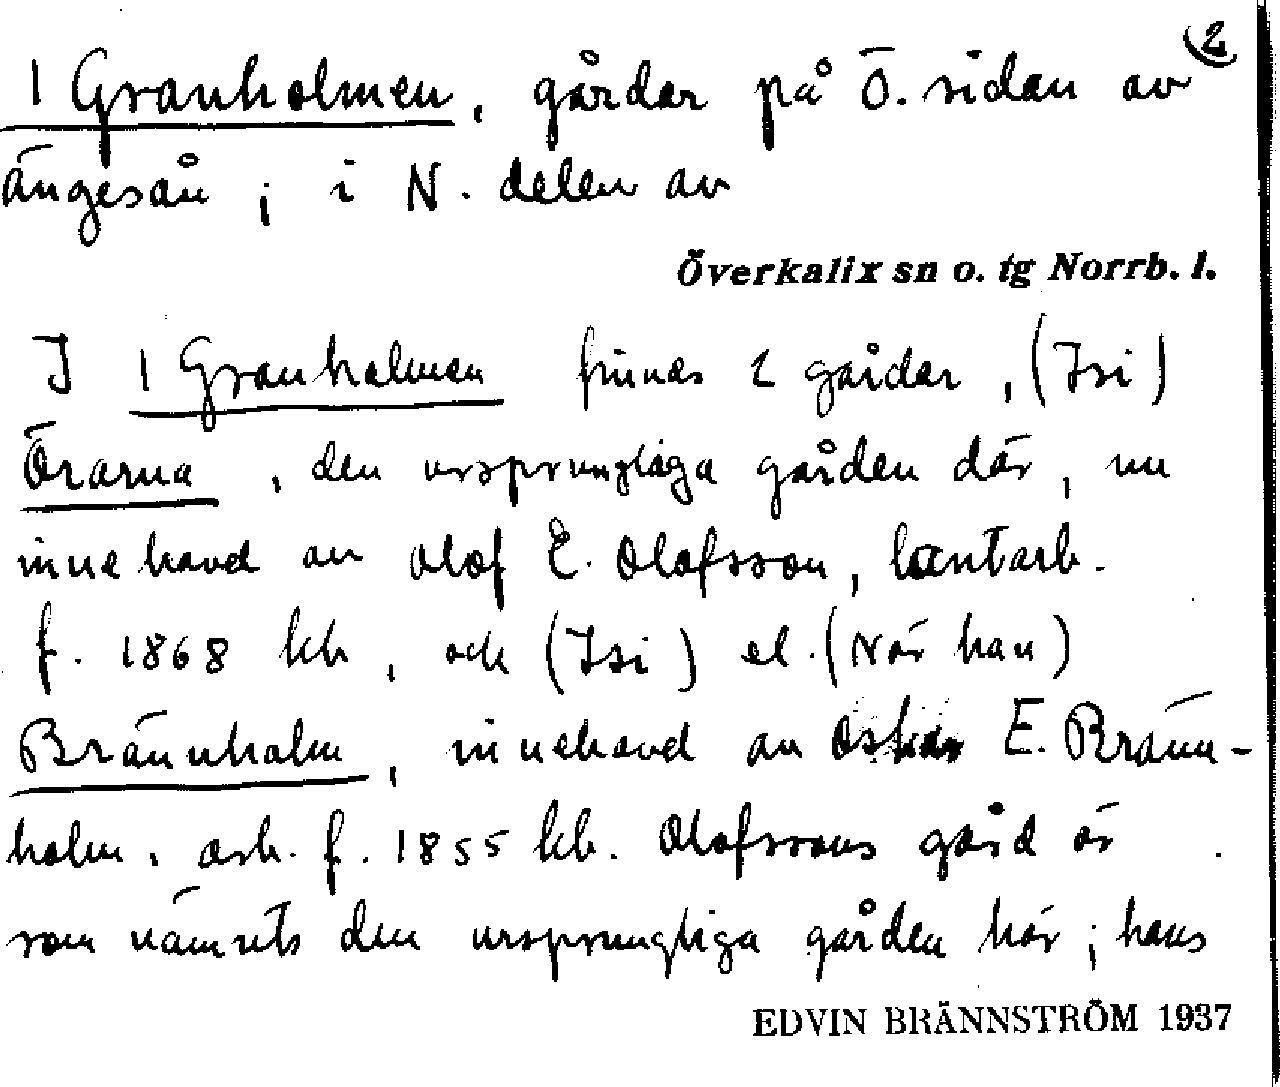 2
1 Granholmen, gårdar på Ö. sidan av
ängesån; i N. delen av
Överkalix sn o. tg Norrb. l.
I 1 Granholmen finnas 2 gårdar, (Isi)
Örarna, den ursprungliga gården där, nu
innehavd av Olof E. Olofsson, lantarb.
f. 1868 kb, och (Isi) el. (När han)
Brännholm, innehavd av Oskar E. Bränn-
holm, arb. f. 1855 kb. Olofssons gård är
som nämnts den ursprungliga gården här; hans
EDVIN BRÄNNSTRÖM 1937